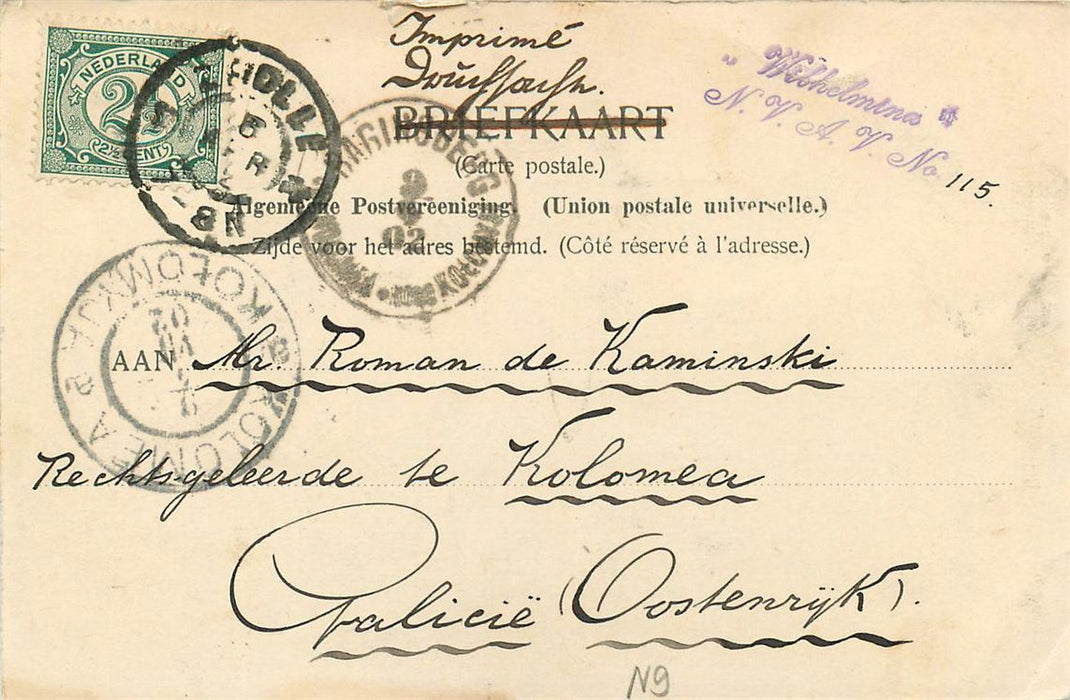 NEDERLAND
2½
2½ CENT
ZWOLLE
Imprimé
Drucksache.
BRIEFKAART
(Carte postale.)
Algemeene Postvereeniging. (Union postale universelle.)
Zijde voor het adres bestemd. (Côté réservé à l'adresse.)
„ Wilhelmina "
N. V. A. V. No 115.
KOŁOMYJA
KOLOMEA
AAN Mr. Roman de Kaminski
Rechtsgeleerde te Kolomea
Galicië (Oostenrijk).
N9